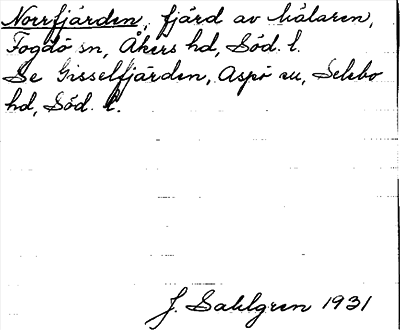 Norrfjärden, fjärd av Mälaren,
Fogdö sn, Åkers hd, Söd. l.
Se Gisselfjärden, Aspö sn, Selebo
hd, Söd. l.
J. Sahlgren 1931